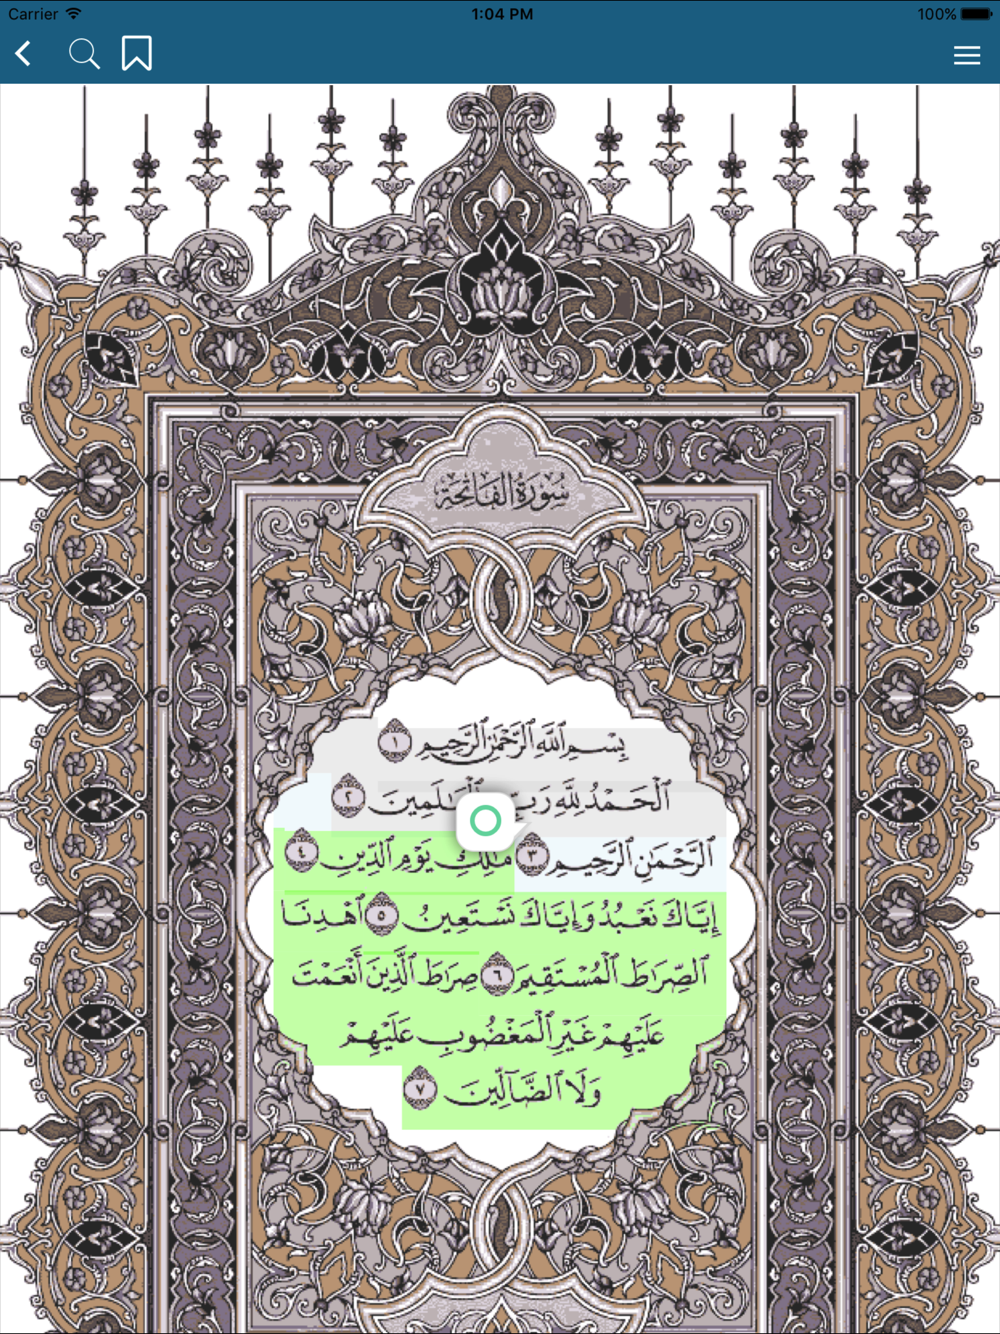 Carrier 1:04 PM 100%
سُورَةُ الفَاتِحَةِ
بِسْمِ ٱللَّهِ ٱلرَّحْمَٰنِ ٱلرَّحِيمِ ١
ٱلْحَمْدُ لِلَّهِ رَبِّ ٱلْعَٰلَمِينَ ٢
ٱلرَّحْمَٰنِ ٱلرَّحِيمِ ٣ مَٰلِكِ يَوْمِ ٱلدِّينِ ٤
إِيَّاكَ نَعْبُدُ وَإِيَّاكَ نَسْتَعِينُ ٥ ٱهْدِنَا
ٱلصِّرَٰطَ ٱلْمُسْتَقِيمَ ٦ صِرَٰطَ ٱلَّذِينَ أَنْعَمْتَ
عَلَيْهِمْ غَيْرِ ٱلْمَغْضُوبِ عَلَيْهِمْ
وَلَا ٱلضَّآلِّينَ ٧